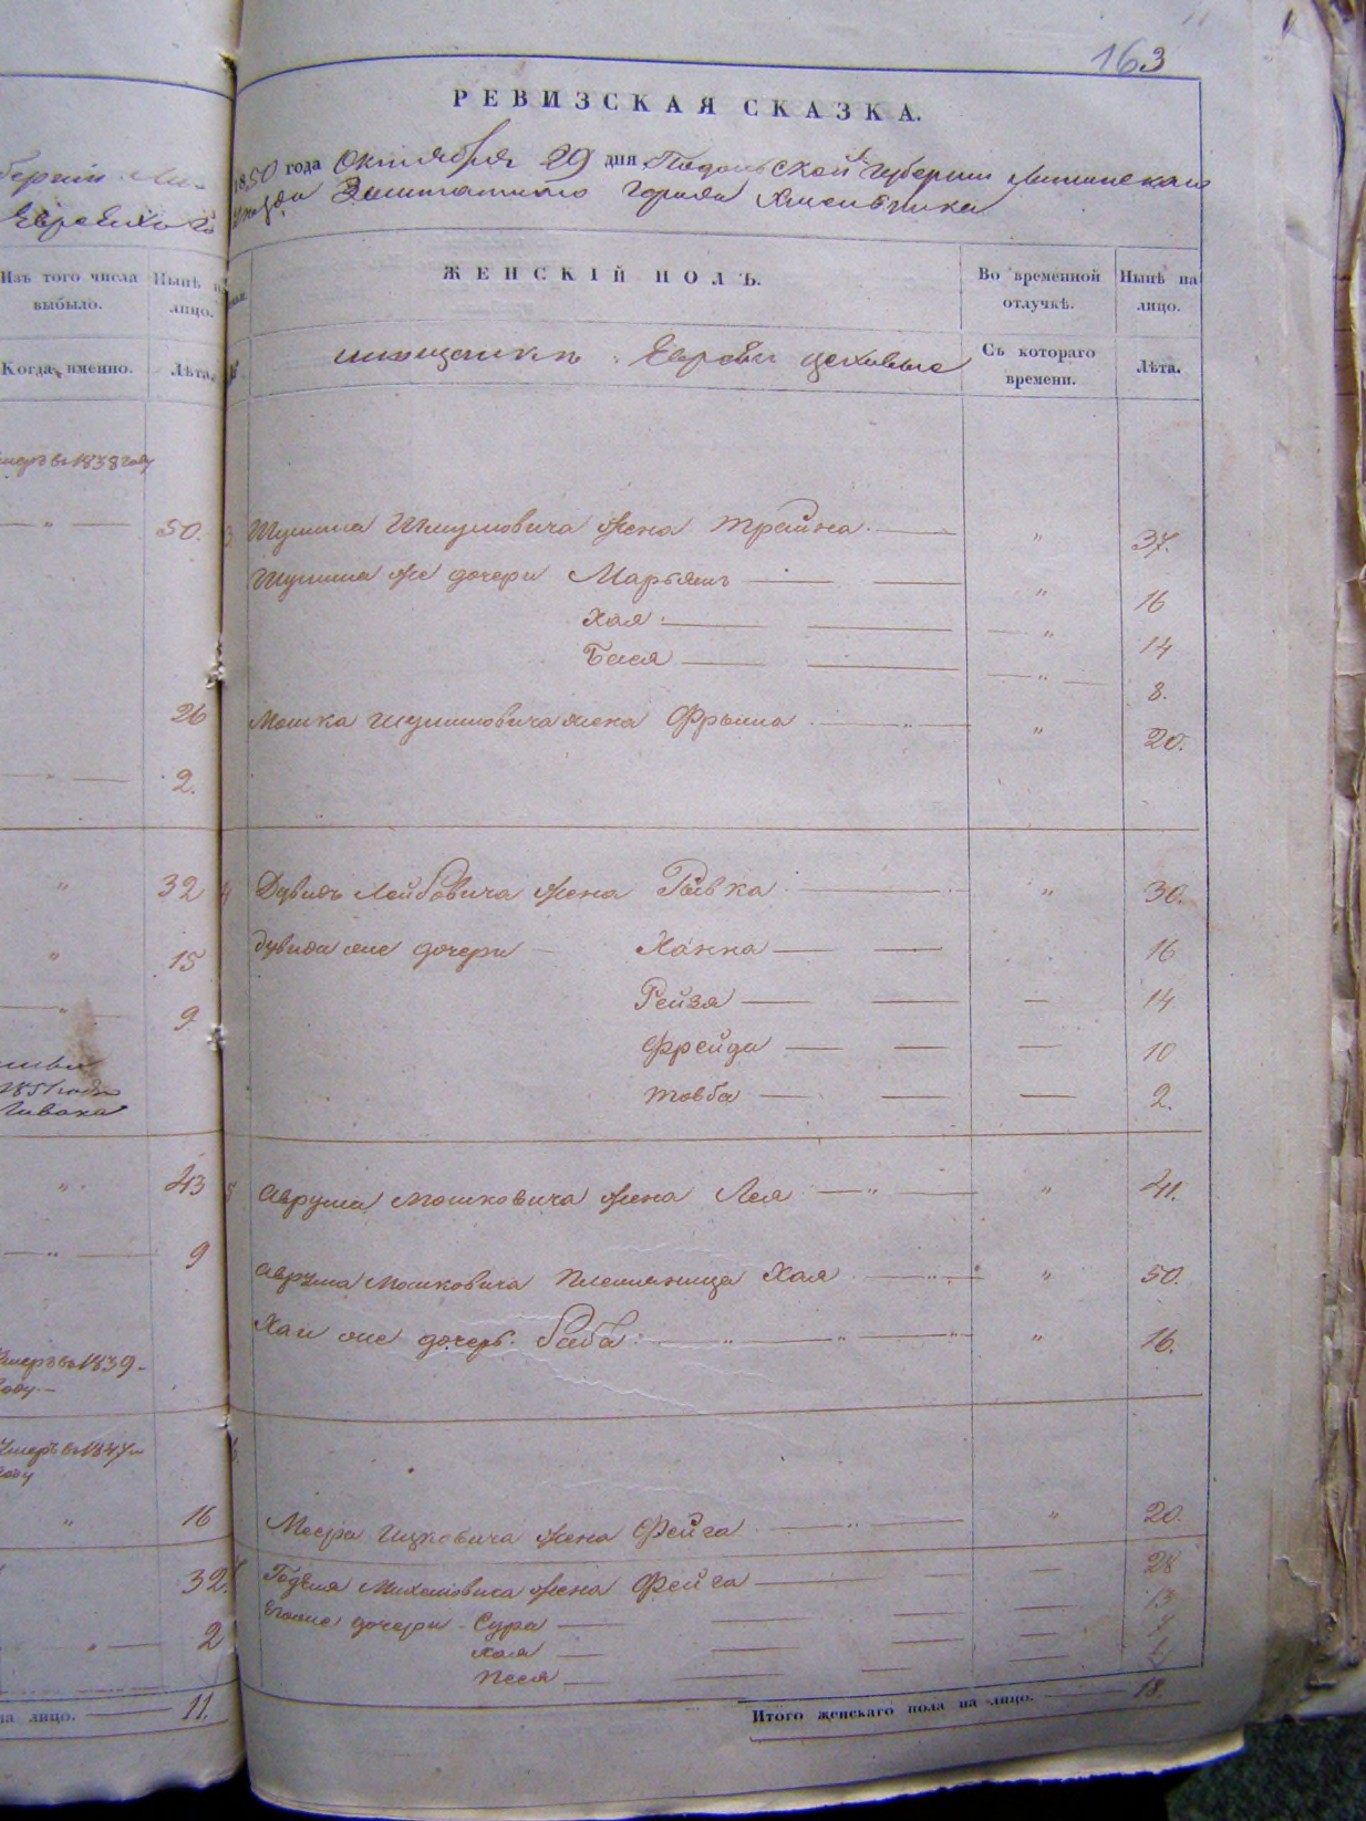 163
РЕВИЗСКАЯ СКАЗКА.
1850 года Октября 29 дня Подольской Губернии Литинскаго
уезда Заштатного города Хмельника
Еврейскаго
Изъ того числа выбыло.
Нынѣ на лицо.
Когда именно.
Лѣта.
ЖЕНСКІЙ ПОЛЪ.
Во временной отлучкѣ.
Нынѣ на лицо.
мещанкъ Евреи цеховые
Съ котораго времени.
Лѣта.
умеръ в 1838 году
50. 3 Шулима Шмулиовича жена Трайна 37.
Шулима же дочери Марьямъ 16
Хая 14
Бася 8.
26 Мошка Шулимовича жена Фрыма 20.
2.
32 4 Дувидъ Лейбовича жена Рывка 30.
15 Дувида же дочери Ханна 16
9 Рейзя 14
Фрейда 10
1851 года
Товба 2.
43 5 Аврума Мошковича жена Лея 41.
9 Аврума Мошковича Племянница Хая 50.
Хаи же дочерь Баба 16.
Умеръ в 1839
году
Умеръ в 1847м
году
16 Меера Ицковича жена Фейга 20.
32. Михелиовича жена Фейга 28
Его же дочери Сура 13
2 Хая
Песя
на лицо. 11.
Итого женскаго пола на лицо. 18.